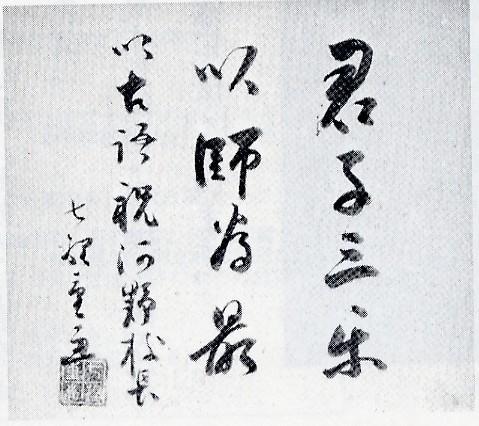 君子三乐
以師為最
以古語祝河野校長
七理重恵